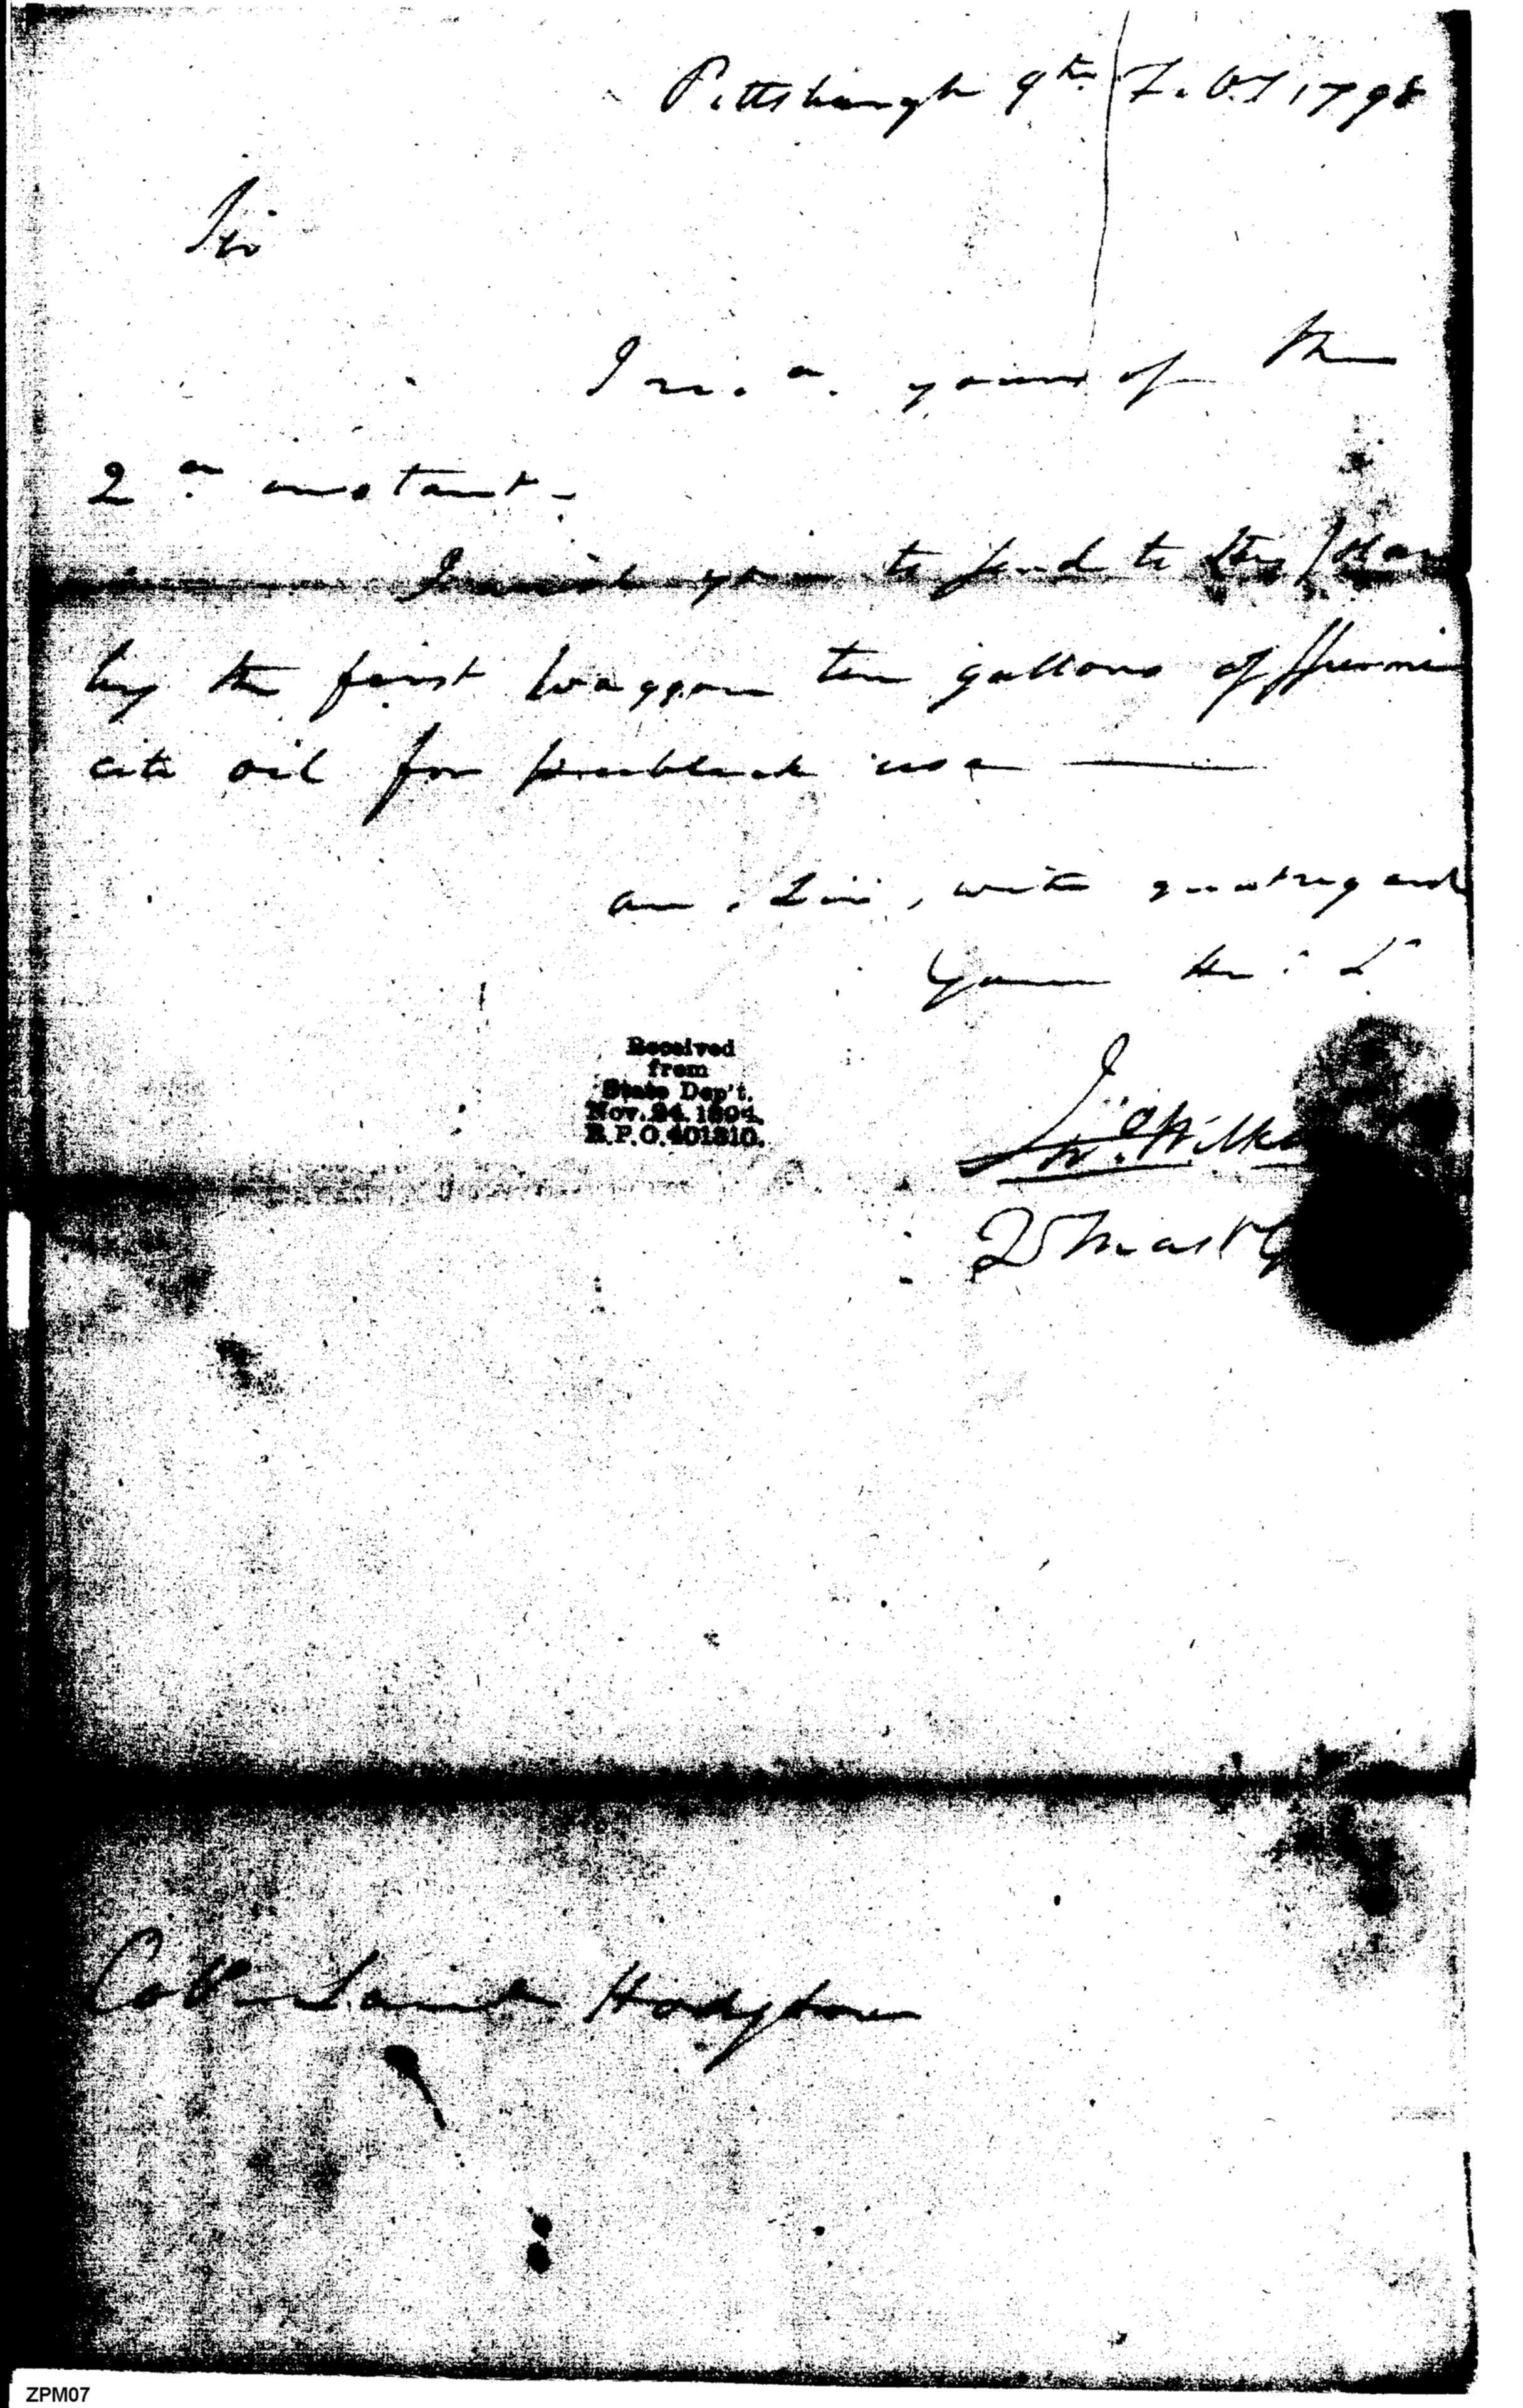 Pittsburgh 9th Feby 1798
Sir
I recd. yours of the
2d instant -
I wish you to send to this place
by the first waggon ten gallons of sperma
cite oil for publick use
am, Sir, with great regard
Your Hm: S
Received
from
State Dep't.
Nov. 24. 1894.
R.P.O. 401310.
Jno Wilki
Qr Mastr G
Coll Saml Hodgdon
ZPM07